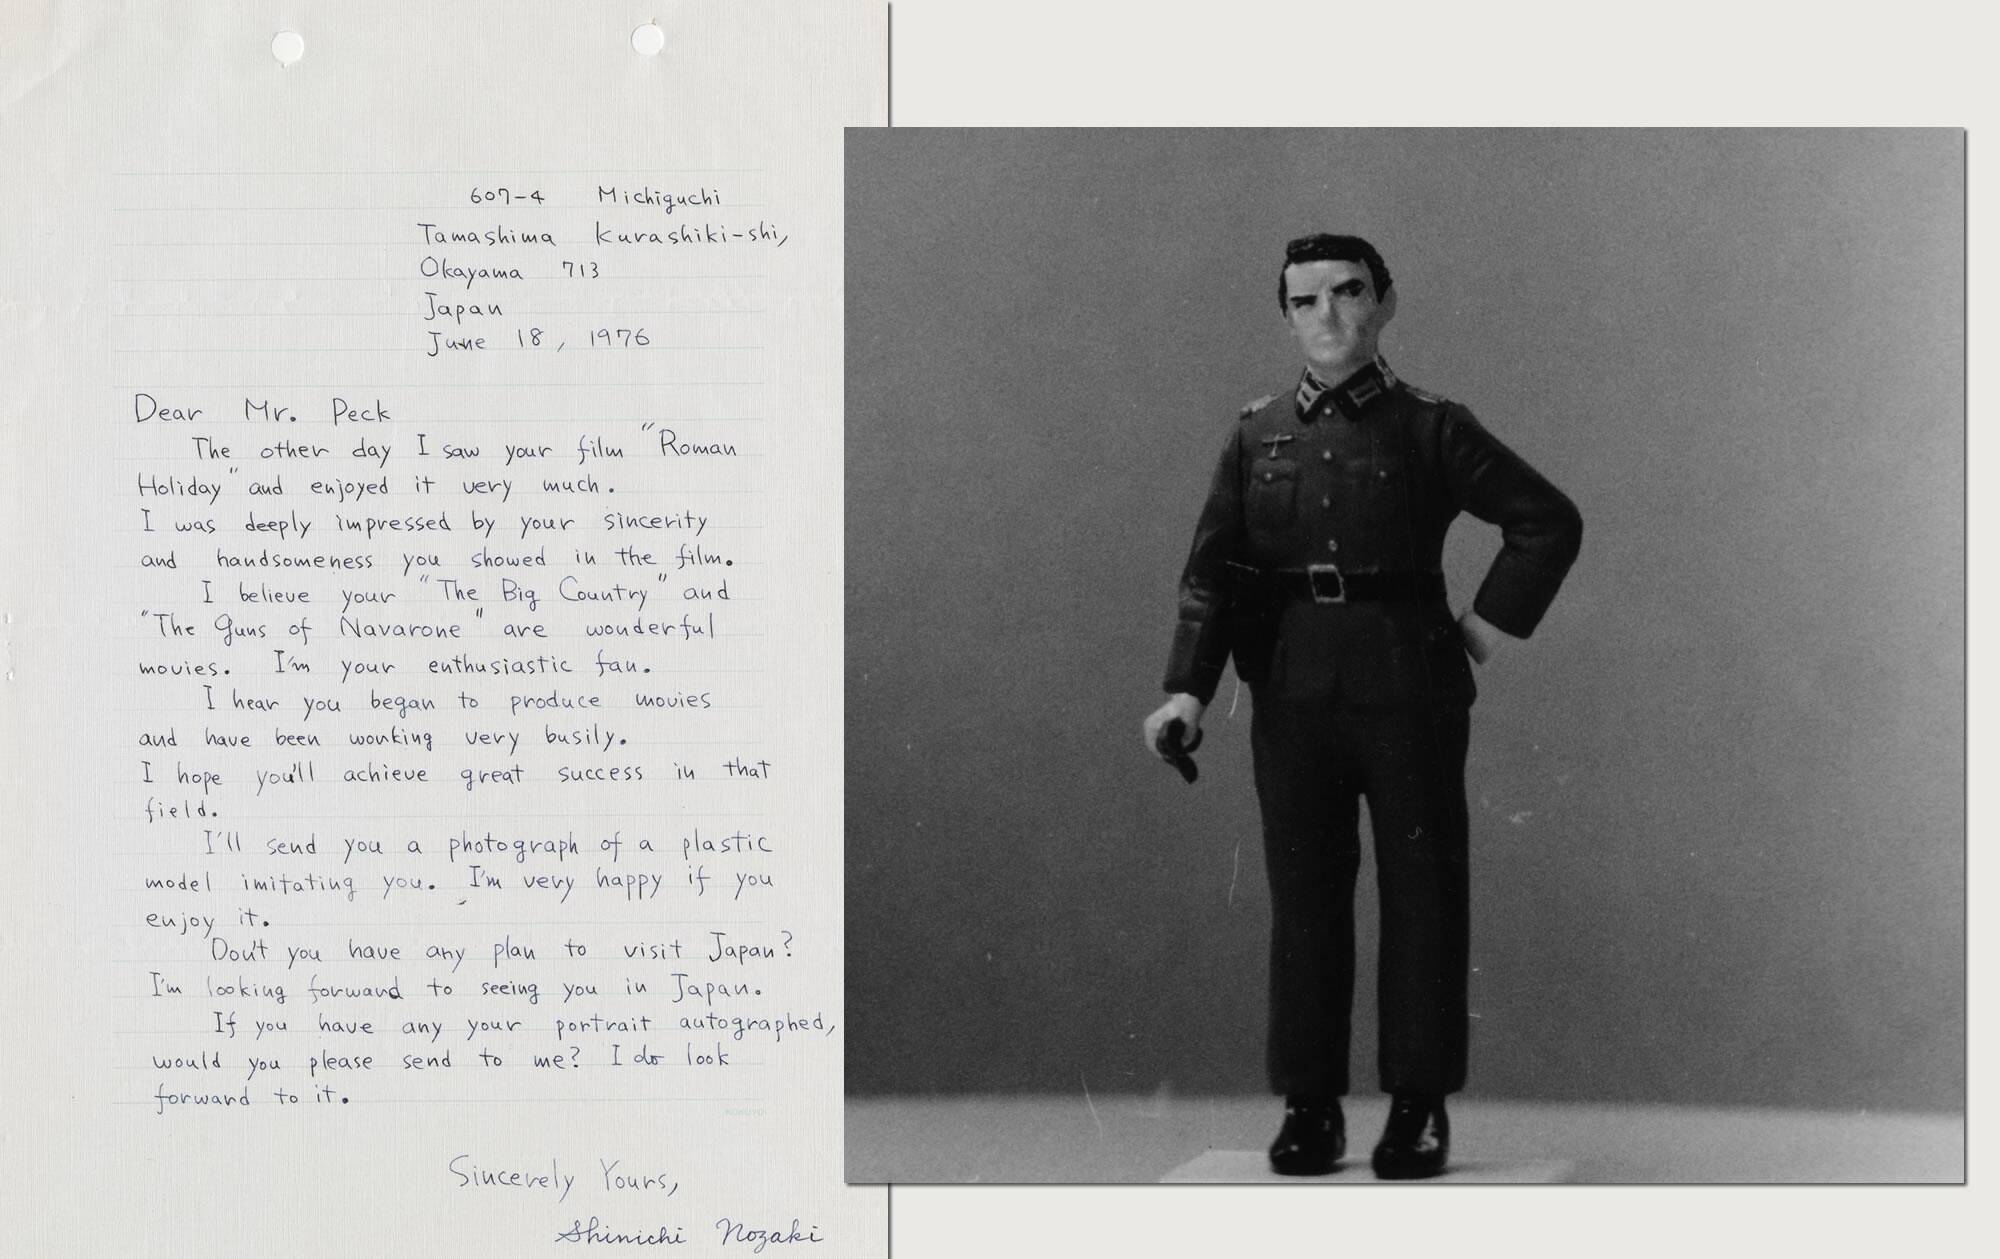 607-4 Michiguchi
Tamashima Kurashiki-shi,
Okayama 713
Japan
June 18, 1976
Dear Mr. Peck
The other day I saw your film "Roman
Holiday" and enjoyed it very much.
I was deeply impressed by your sincerity
and handsomeness you showed in the film.
I believe your "The Big Country" and
"The Guns of Navarone" are wonderful
movies. I'm your enthusiastic fan.
I hear you began to produce movies
and have been working very busily.
I hope you'll achieve great success in that
field.
I'll send you a photograph of a plastic
model imitating you. I'm very happy if you
enjoy it.
Don't you have any plan to visit Japan?
I'm looking forward to seeing you in Japan.
If you have any your portrait autographed,
would you please send to me? I do look
forward to it.
Sincerely Yours,
Shinichi Nozaki